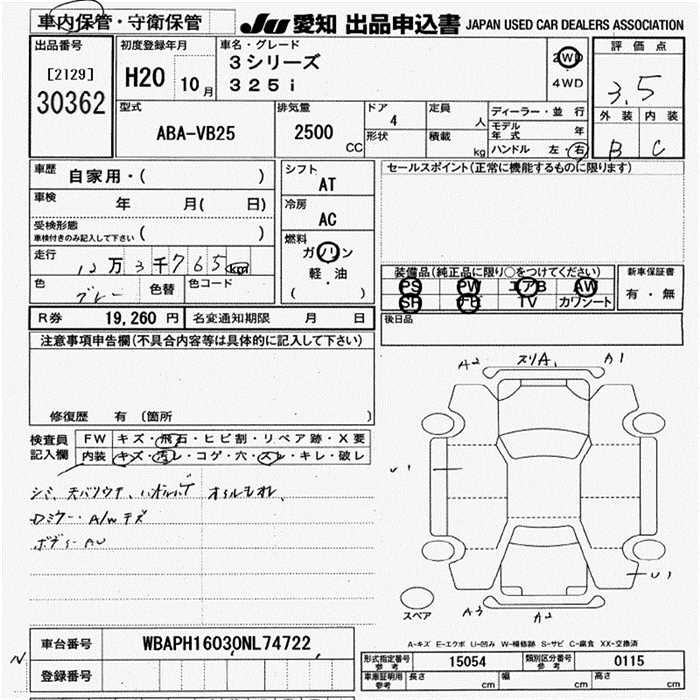 車内保管・守衛保管
JU 愛知 出品申込書 JAPAN USED CAR DEALERS ASSOCIATION
出品番号
[2129]
30362
初度登録年月
H20 10月
車名・グレード
3シリーズ
325i
2WD
4WD
評価点
3.5
外装 内装
B C
型式
ABA-VB25
排気量
2500 CC
ドア
4
形状
定員
人
積載
kg
ディーラー・並行
モデル年式 年
ハンドル 左・右
車歴 自家用・( )
車検 年 月( 日)
受検形態
車検付きのみ記入して下さい ( )
走行 12万3千765km
色 グレー 色替 色コード
シフト
AT
冷房
AC
燃料
ガソリン
軽・油
( )
セールスポイント(正常に機能するものに限ります)
装備品(純正品に限り○をつけてください)
PS PW エアB AW
SR TV カワシート
新車保証書
有・無
後日品
R券 19,260円 名変通知期限 月 日
注意事項申告欄(不具合内容等は具体的に記入して下さい)
修復歴 有 (箇所 )
検査員記入欄
FW キズ・飛石・ヒビ割・リペア跡・X要
内装 キズ・汚レ・コゲ・穴・スレ・キレ・破レ
シミ、天バリウキ、
Dミラー・A/Wキズ
ボディーAU
A2 スリA A1
U1
U1
A3 A2
スペア
A-キズ E-エクボ U-凹み W-補修跡 S-サビ C-腐食 XX-交換済
車台番号 WBAPH16030NL74722
登録番号
形式指定番号参考 15054 類別区分番号参考 0115
車庫証明用参考 長さ cm 幅 cm 高さ cm
N